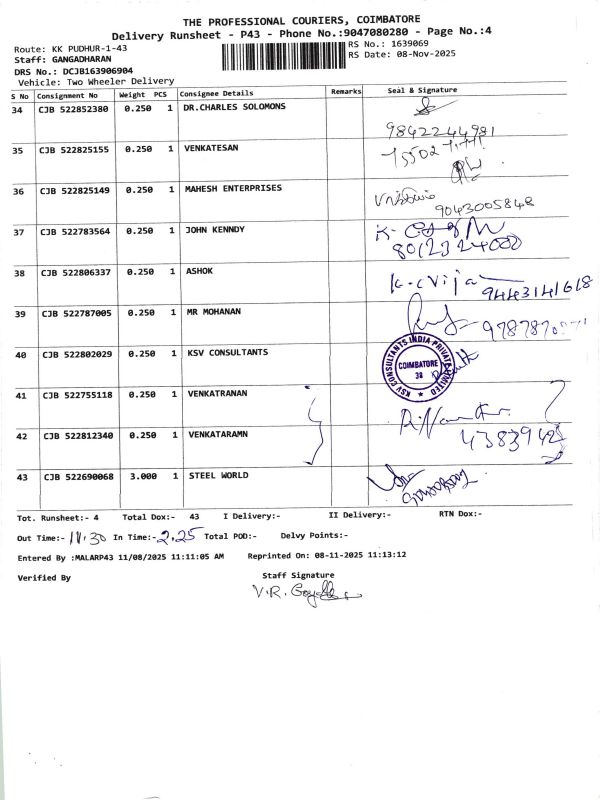 THE PROFESSIONAL COURIERS, COIMBATORE
Delivery Runsheet - P43 - Phone No.:9047080280 - Page No.:4
Route: KK PUDHUR-1-43
RS No.: 1639069
Staff: GANGADHARAN
RS Date: 08-Nov-2025
DRS No.: DCJB163906904
Vehicle: Two Wheeler Delivery
S No Consignment No Weight PCS Consignee Details Remarks Seal & Signature
34 CJB 522852380 0.250 1 DR.CHARLES SOLOMONS
9842244981
35 CJB 522825155 0.250 1 VENKATESAN
36 CJB 522825149 0.250 1 MAHESH ENTERPRISES
9043005848
37 CJB 522783564 0.250 1 JOHN KENNDY
8012324000
38 CJB 522806337 0.250 1 ASHOK
K-c Vija
9443141618
39 CJB 522787005 0.250 1 MR MOHANAN
40 CJB 522802029 0.250 1 KSV CONSULTANTS
KSV CONSULTANTS INDIA PRIVATE LIMITED
COIMBATORE
38
41 CJB 522755118 0.250 1 VENKATRANAN
42 CJB 522812340 0.250 1 VENKATARAMN
4383942
43 CJB 522690068 3.000 1 STEEL WORLD
Tot. Runsheet:- 4 Total Dox:- 43 I Delivery:- II Delivery:- RTN Dox:-
Out Time:- 11.30 In Time:- 2.25 Total POD:- Delvy Points:-
Entered By :MALARP43 11/08/2025 11:11:05 AM Reprinted On: 08-11-2025 11:13:12
Verified By Staff Signature
V.R.